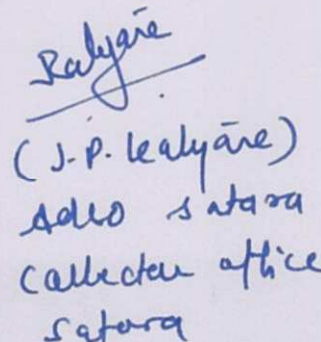 Kalyāne
(J.P. Kalyāne)
ADIO Satara
Collector office
Satara